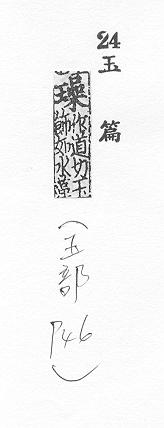 24玉篇
璪子道切玉
飾如水藻
（玉部
P46）